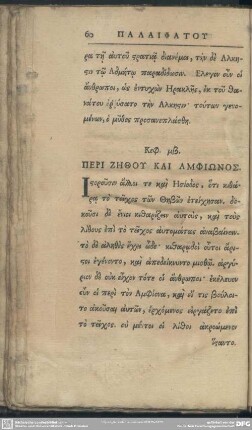 60 ΠΑΛΑΙΦΑΤΟΥ
ρα τῇ αὐτοῦ στρατιᾷ διανέμει, τὴν δὲ Ἄλκη-
ϛιν τῷ Ἀδμήτῳ παραδίδωσι. Ἔλεγον οὖν οἱ
ἄνθρωποι, ὡς ἐντυχὼν Ἡρακλῆς, ἐκ τοῦ θα-
νάτου ἐῤῥύσατο τὴν Ἄλκηϛιν· τούτων γενο-
μένων, ὁ μῦθος προσανεπλάσθη.
Κεφ. μβ.
ΠΕΡΙ ΖΗΘΟΥ ΚΑΙ ΑΜΦΙΩΝΟΣ.
Ἱϛοροῦσιν ἄλλοι τε καὶ Ἡσίοδος, ὅτι κιθά-
ρῃ τὸ τεῖχος τῶν Θηβῶν ἐτείχισαν. δο-
κοῦσι δὲ ἔνιοι κιθαρίζειν αὐτοὺς, καὶ τοὺς
λίθους ἐπὶ τὸ τεῖχος αὐτομάτως ἀναβαίνειν.
τὸ δὲ ἀληθὲς ἔχει ὧδε· κιθαρῳδοὶ οὗτοι ἄρι-
ϛοι ἐγένοντο, καὶ ἀπεδείκνυντο μισθῷ. ἀργύ-
ριον δὲ οὐκ εἶχον τότε οἱ ἄνθρωποι· ἐκέλευον
οὖν οἱ περὶ τὸν Ἀμφίονα, καὶ εἴ τις βούλοι-
το ἀκοῦσαι αὐτῶν, ἐρχόμενος εἰργάζετο ἐπὶ
τὸ τεῖχος. οὐ μέντοι οἱ λίθοι ἀκροώμενοι